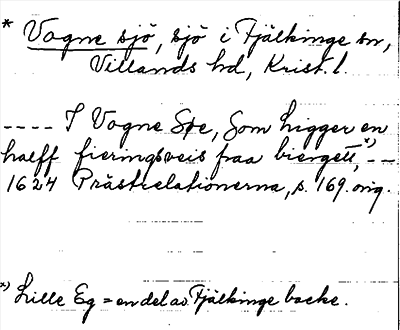 * Vogne sjö, sjö i Fjälkinge sn,
Villands hd, Krist. l.
---- I Vogne Søe, Som ligger en
halff fieringsveis fraa bierget*), --
1624 Prästrelationerna, s. 169. orig.
*) Lille Eg = en del av Fjälkinge backe.